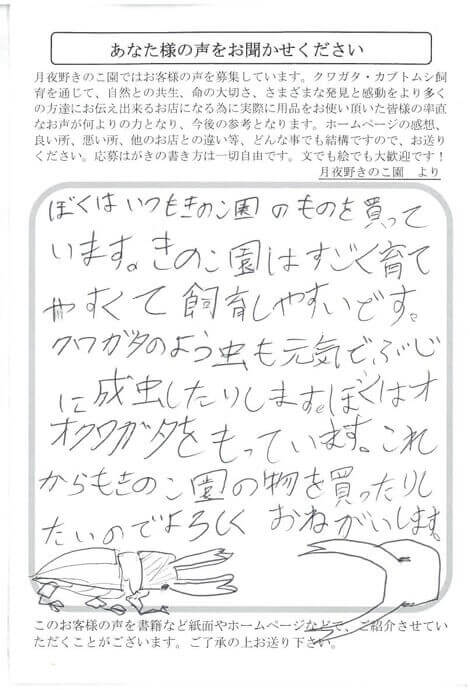 あなた様の声をお聞かせください
月夜野きのこ園ではお客様の声を募集しています。クワガタ・カブトムシ飼
育を通じて、自然との共生、命の大切さ、さまざまな発見と感動をより多く
の方達にお伝え出来るお店になる為に実際に用品をお使い頂いた皆様の率直
なお声が何よりの力となり、今後の参考となります。ホームページの感想、
良い所、悪い所、他のお店との違い等、どんな事でも結構ですので、お送り
ください。応募はがきの書き方は一切自由です。文でも絵でも大歓迎です！
月夜野きのこ園　より
ぼくはいつもきのこ園のものを買って
います。きのこ園はすごく育て
やすくて飼育しやすいです。
クワガタのよう虫も元気でぶじ
に成虫したりします。ぼくはオ
オクワガタをもっています。これ
からもきのこ園の物を買ったりし
たいのでよろしくおねがいします。
このお客様の声を書籍など紙面やホームページなどで、ご紹介させてい
ただくことがございます。ご了承の上お送り下さい。